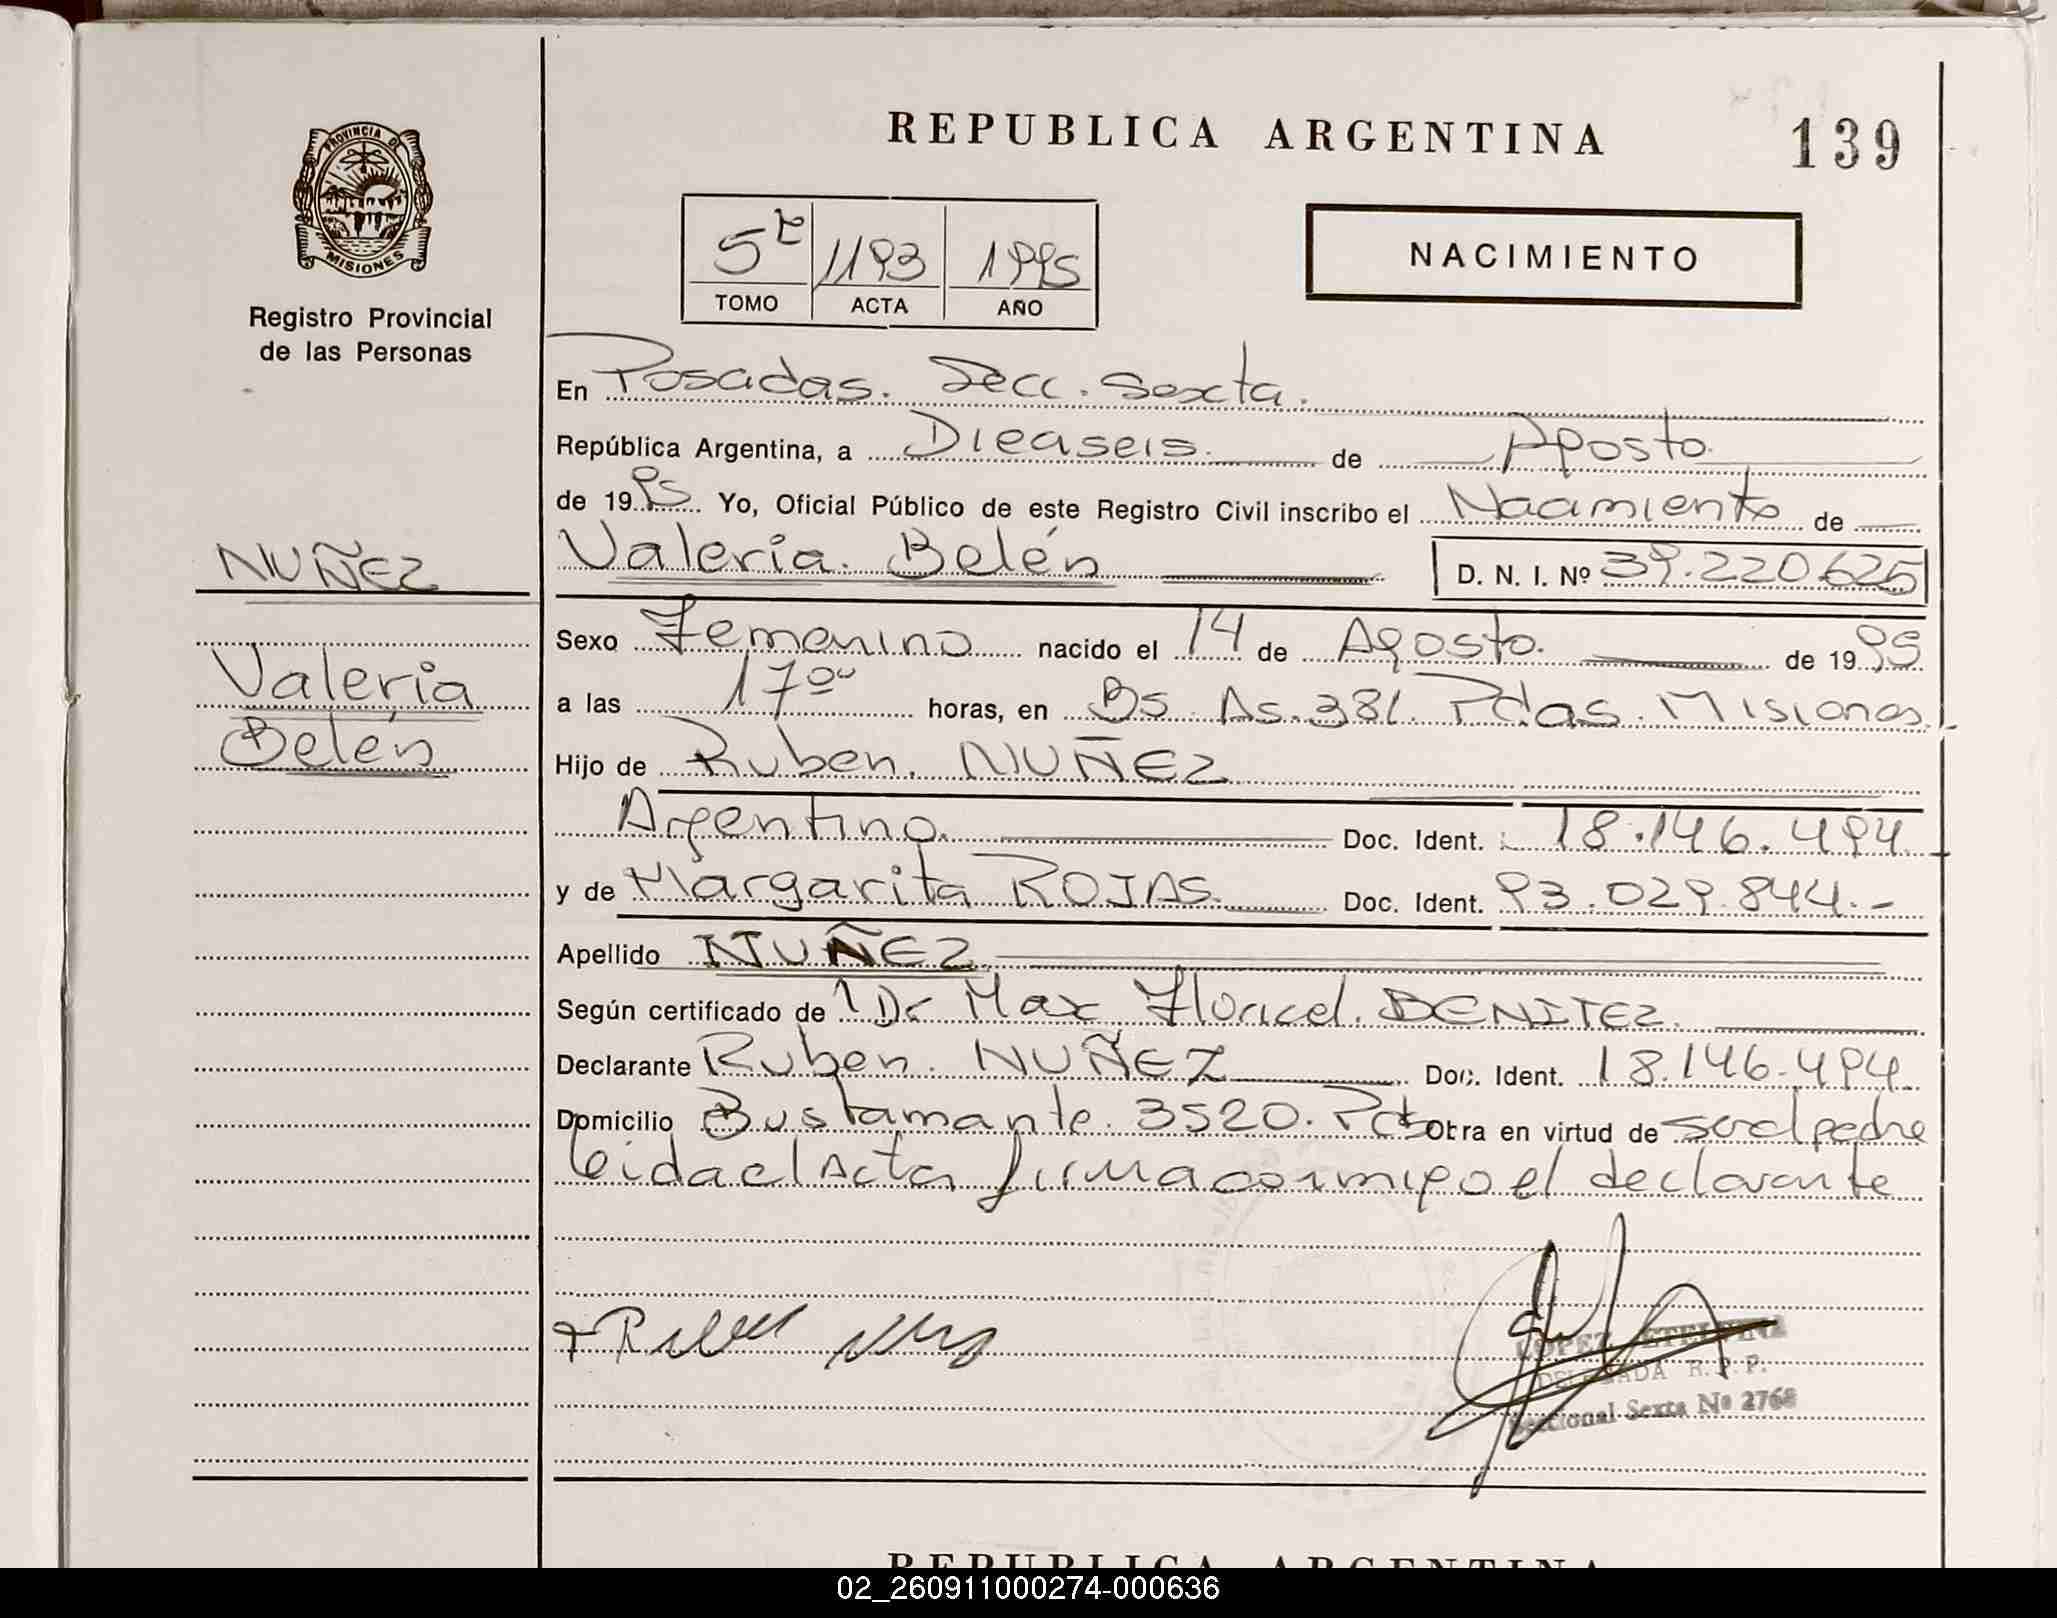 REPUBLICA ARGENTINA
139
PROVINCIA DE
MISIONES
Registro Provincial
de las Personas
5º 1193 1995
TOMO ACTA AÑO
NACIMIENTO
En Posadas. Secc. Sexta.
República Argentina, a Dieciseis de Agosto
de 1995 Yo, Oficial Público de este Registro Civil inscribo el Nacimiento de
NUÑEZ
Valeria Belén
Valeria. Belén D. N. I. Nº 39.220.625
Sexo Femenino nacido el 14 de Agosto. de 1995
a las 17 00 horas, en Bs As. 381. Pdas. Misiones.
Hijo de Ruben. NUÑEZ
Argentino. Doc. Ident. : 18.146.494
y de Margarita ROJAS. Doc. Ident. 93.029.844.-
Apellido NUÑEZ
Según certificado de Dr Max BENITEZ.
Declarante Ruben. NUÑEZ Doc. Ident. 18.146.494
Domicilio Bustamante. 3520. Pdas Obra en virtud de ser el padre
leida el Acta firma conmigo el declarante
LOPEZ ETELVINA
DELEGADA R. P. P.
Seccional Sexta Nº 2768
REPUBLICA ARGENTINA
02_260911000274-000636